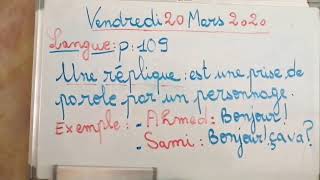 Vendredi 20 Mars 2020
Langue: p: 109
Une réplique: est une prise de
parole par un personnage.
Exemple: - Ahmed: Bonjour!
- Sami: Bonjour! çava?